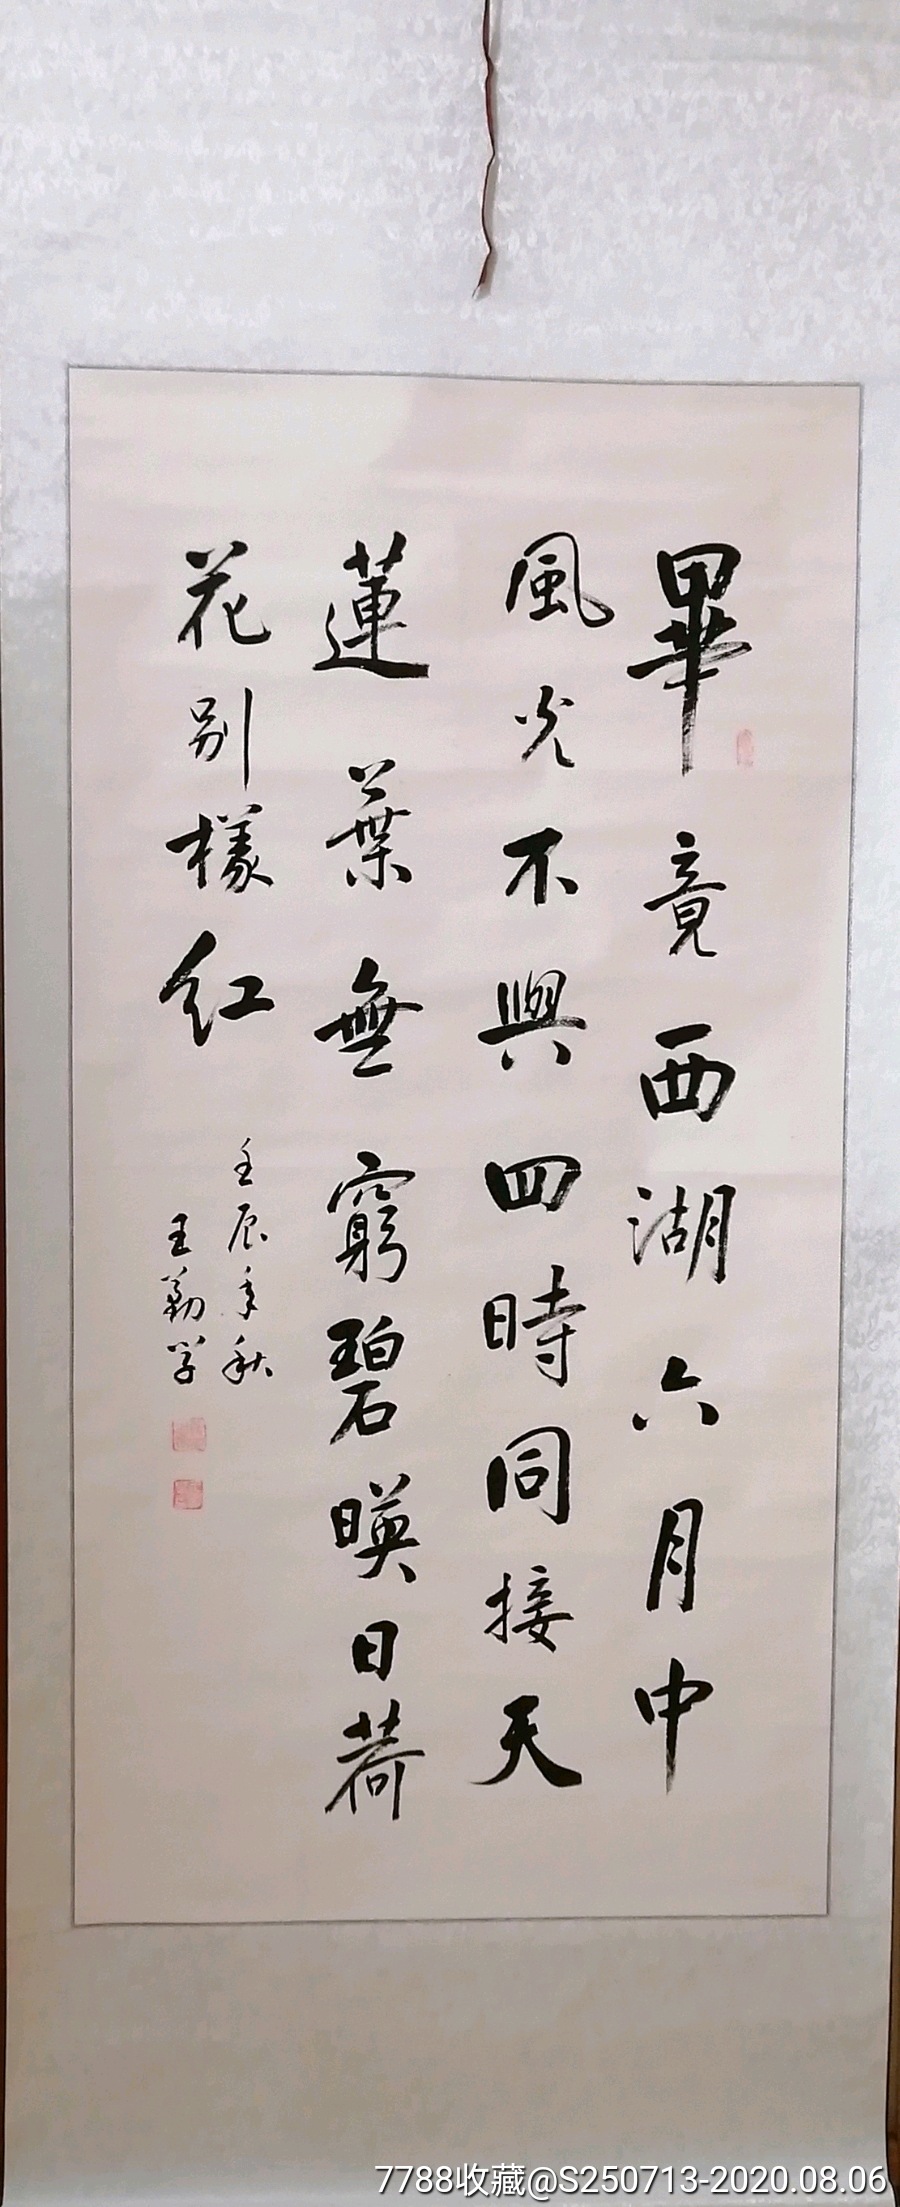 畢竟西湖六月中
風光不與四時同接天
蓮葉無窮碧暎日荷
花別樣紅
壬辰年秋
王勤学
7788收藏@S250713-2020.08.06